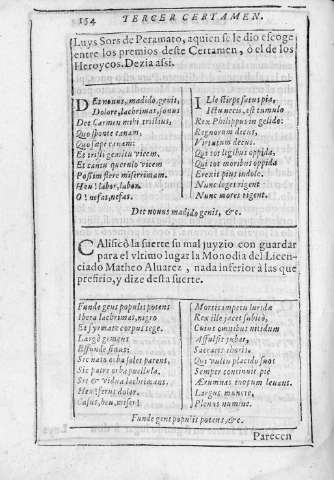 154 TERCER CERTAMEN.
Luys Sors de Peramato, a quien se le dio escoge
entre los premios deste Certamen, ò el de los
Heroycos. Dezia assi.
DEt nonus, madido, genis,
Dolore, lachrimas, sonus
Det Carmen mihi tristius,
Quo sponte canam,
Quo sæpe canam:
Et tristi genitu vicem,
Et cantu querulo vicem
Possim flere miserrimam.
Heu! labor, labor.
O! nefas, nefas.
ILle stirpe satus pia,
Ictu necis, est tumulo
Rex Philippus in gelido:
Regnorum decus,
Virtutum decus.
Qui tot legibus oppida,
Qui tot moribus oppida
Erexit pius indole.
Nunc leges rigent
Nunc mores rigent.
Det nonus madido genis, &c.
CAlificò la suerte su mal juyzio con guardar
para el vltimo lugar la Monodia del Licen-
ciado Matheo Aluarez, nada inferior à las que
prefirio, y dize desta suerte.
Funde gens populi potens
Ibera lachrimas, nigro
Et syrmate corpus tege.
Largo gemens
Effunde sinus:
Sic nato orba solet parens,
Sic patre orba puellula.
Sic & vidua lachrimans.
Heu! ferus dolor.
Casus, heu, miser!
Mortis impetu luridæ
Rex ille jacet subito,
Cuius omnibus nitidum
Affulsit jubar,
Sacratis thuris.
Qui vultu placido suos
Semper continuit pie
Ærumnas inopum leuans.
Largus munere,
Plenus numine.
Funde gens populi potens, &c.
Parecen